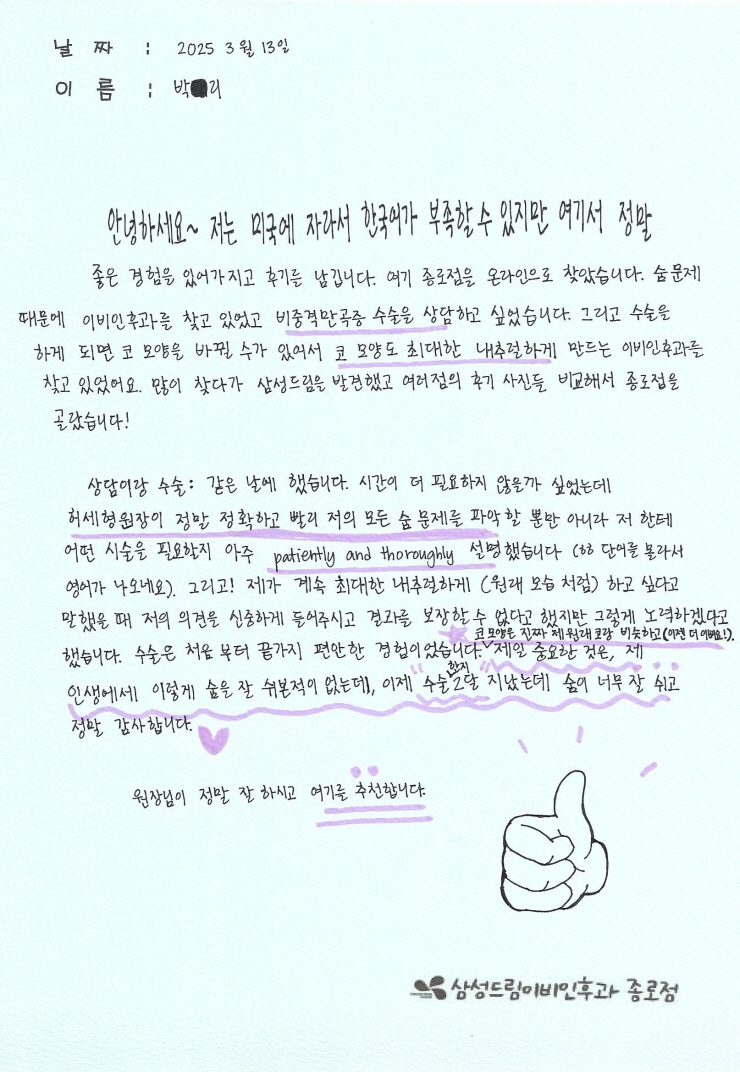 날 짜 : 2025 3월 13일
이 름 : 박 리
안녕하세요~ 저는 미국에 자라서 한국어가 부족할 수 있지만 여기서 정말
좋은 경험을 있어가지고 후기를 남깁니다. 여기 종로점을 온라인으로 찾았습니다. 숨 문제
때문에 이비인후과를 찾고 있었고 비중격만곡증 수술을 상담하고 싶었습니다. 그리고 수술을
하게 되면 코 모양을 바뀔 수가 있어서 코 모양도 최대한 내추럴하게 만드는 이비인후과를
찾고 있었어요. 많이 찾다가 삼성드림을 발견했고 여러점의 후기 사진들 비교해서 종로점을
골랐습니다!
상담이랑 수술: 같은 날에 했습니다. 시간이 더 필요하지 않을까 싶었는데
허세형원장이 정말 정확하고 빨리 저의 모든 숨 문제를 파악할 뿐만 아니라 저 한테
어떤 시술을 필요한지 아주 patiently and thoroughly 설명했습니다 (ㅎㅎ 단어를 몰라서
영어가 나오네요). 그리고! 제가 계속 최대한 내추럴하게 (원래 모습 처럼) 하고 싶다고
말했을 때 저의 의견을 신중하게 들어주시고 결과를 보장할 수 없다고 했지만 그렇게 노력하겠다고
코 모양은 진짜 제 원래 코랑 비슷하고 (이젠 더 이뻐요!).
했습니다. 수술은 처음 부터 끝가지 편안한 경험이었습니다. 제일 중요란 것은, 제
인생에세 이렇게 숨을 잘 쉬본적이 없는데, 이제 "수술한지 2달" 지났는데 숨이 너무 잘 쉬고
정말 감사합니다.
원장님이 정말 잘 하시고 여기를 추천합니다.
삼성드림이비인후과 종로점